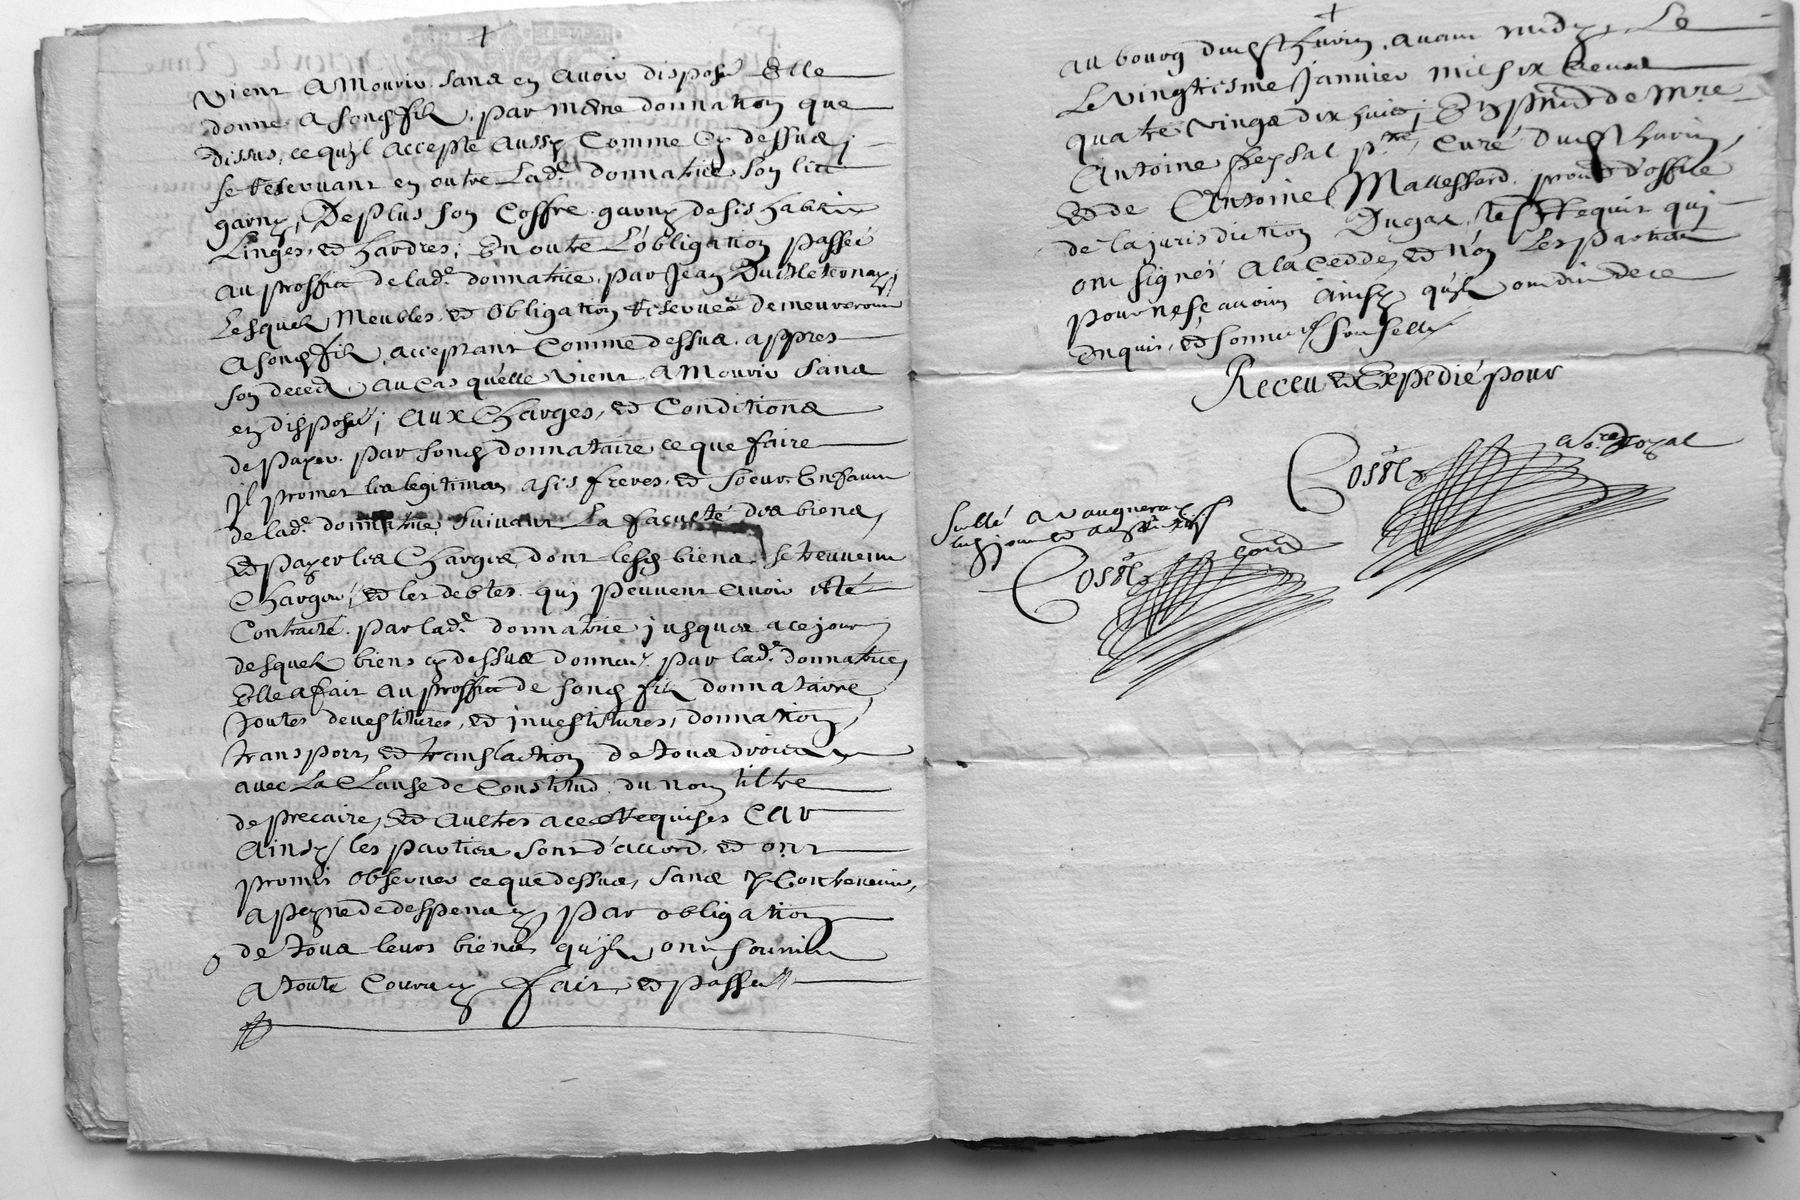 vient a mourir sans en avoir disposé Elle
donne a sond fils, par mesme donnation que
dissus, ce quyl accepte aussy Comme Cy dessus;
se reservant en outre Lad.e donnatrice son lict
garny, De plus son Coffre garny de sis habitz
Linges, et hardres; En outre L'obligation passée
au proffict de lad.e donnatrice, par Jean
Lesquels Meubles, et Obligation reservés demeureront
a sond fils, acceptant Comme dessus, appres
son deceds au Cas qu'elle vient a Mourir sans
en disposer; aux Charges, et Conditions
de payer par sond donnataire ce que faire
Jl promet les legitimes a sis freres, et soeurs Enfants
de lad.e donnatrice, suivant La faculté des biens,
et payer les Charges dont lesd biens se treuvent
Chargés, et les debtes qui peuvent avoir esté
Contracté par lad.e donnatrice jusques a ce jour
desquels biens cy dessus donnez par lad.e donnatrice,
Elle a fait au proffict de sond fils donnataire
toutes devestitures, et jnvestitures, donnation,
transport, et translaction de tous droicts
avec La Clause de Constitud du nom tiltre
de precaire, et aultres a ce Requises Car
ainsy les parties sont d'accord, et ont
promis observer ce que dessus, sans y Contrevenir,
a peyne de despens par obligation
de tous leurs biens quyls ont soumis
a toute Cour fait, et passé
au bourg dud St havin, avant midy, Le
Le vingtiesme Janvier mil six cent
quatre vingts dix huict; En pnce de Mre
Antoine Peysal ptre, Curé dud St havin,
et de Antoine Mallessard, procur d'office
de la jurisdiction Dugas, tes Requis qui
ont signés a la Cedde, et non Les parties
pour ne sçavoir ainsy quyls ont dit de ce
Enquis, et sommés
Receu et Expedié pour
Coste nore Royal
Scellé a Vaugneray
Coste